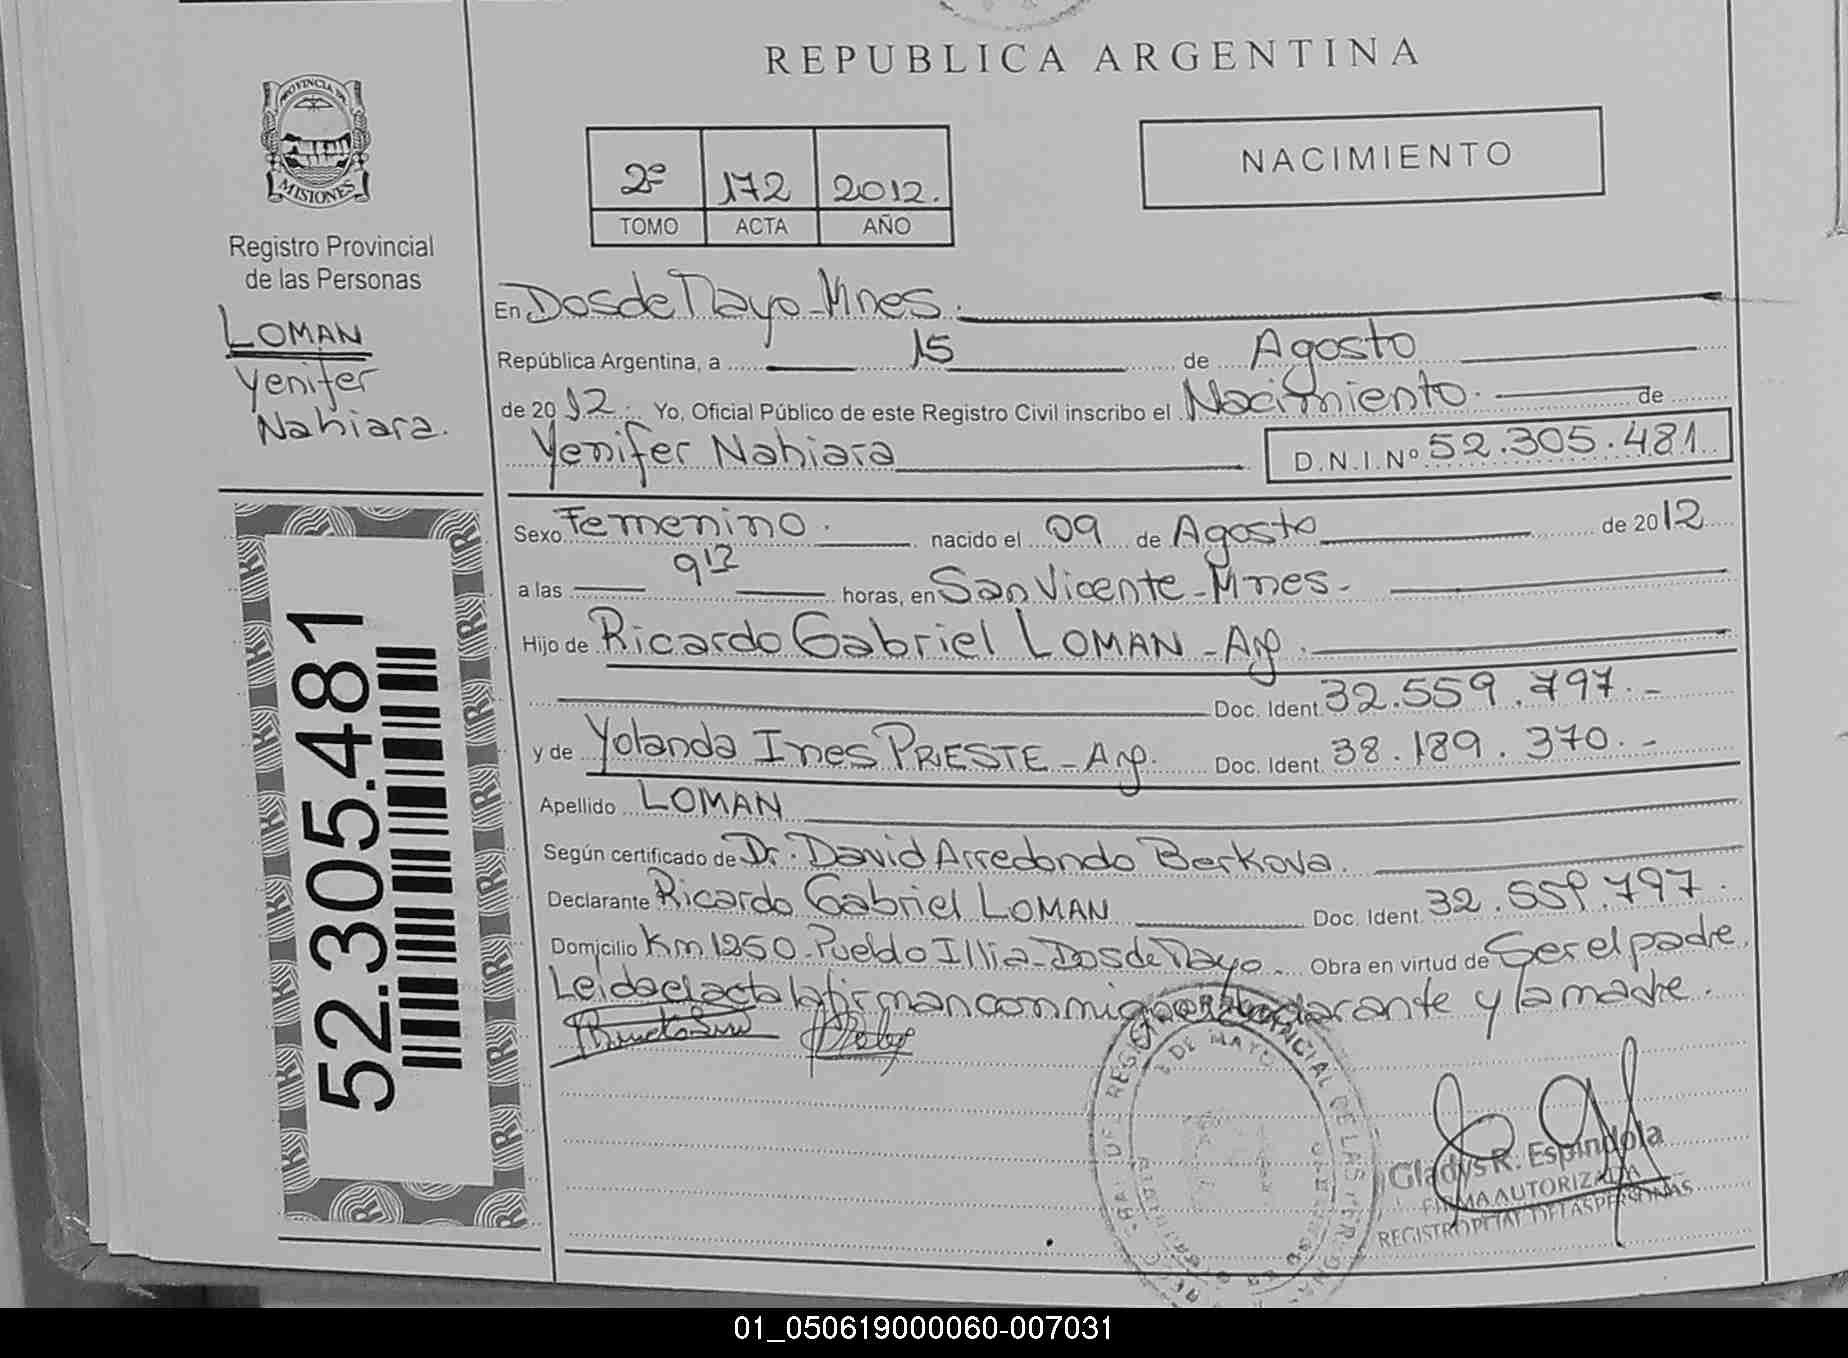 REPUBLICA ARGENTINA
PROVINCIA DE
MISIONES
Registro Provincial
de las Personas
LOMAN
Yenifer
Nahiara.
52.305.481
2º 172 2012.
TOMO ACTA AÑO
NACIMIENTO
En Dos de Mayo - Mnes.
República Argentina, a 15 de Agosto
de 2012. Yo, Oficial Público de este Registro Civil inscribo el Nacimiento. de
Yenifer Nahiara D.N.I.Nº 52.305.481
Sexo Femenino. nacido el 09 de Agosto de 2012
a las 9 12 horas, en San Vicente - Mnes -
Hijo de Ricardo Gabriel LOMAN - Arg.
Doc. Ident. 32.559.797.-
y de Yolanda Ines PRESTE - Arg. Doc. Ident. 38.189.370.-
Apellido LOMAN
Según certificado de Dr. David Arredondo Berkova.
Declarante Ricardo Gabriel LOMAN Doc. Ident. 32.559.797.
Domicilio Km 1250 - Pueblo Illia - Dos de Mayo. Obra en virtud de Ser el padre.
Leido el acta la firman conmigo el declarante y la madre.
2 DE MAYO
Gladys R. Espindola
FIRMA AUTORIZADA
REGISTRO PCIAL DE LAS PERSONAS
01_050619000060-007031